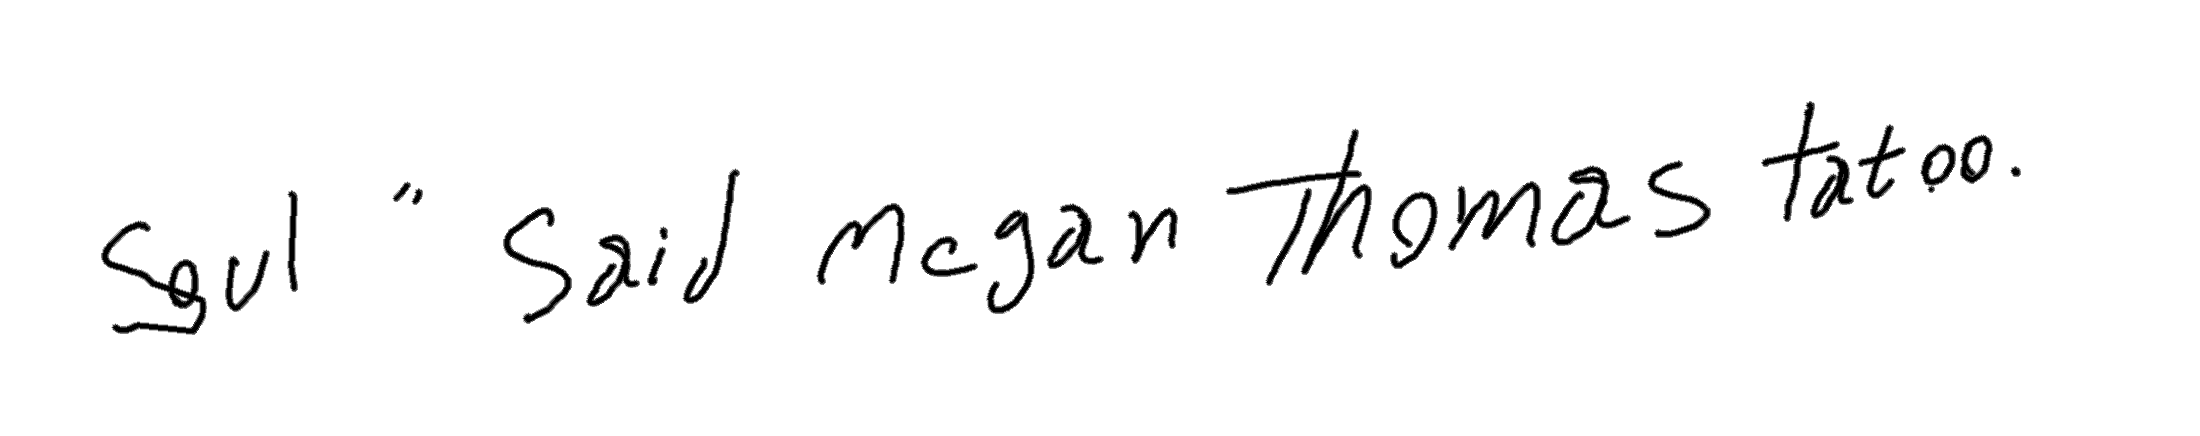 Soul " Said Megan Thomas tatoo.